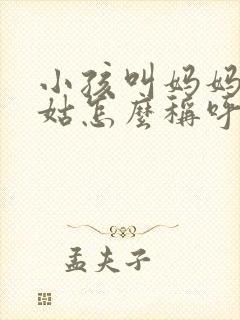 小孩叫妈妈
姑怎麼稱呼
孟夫子